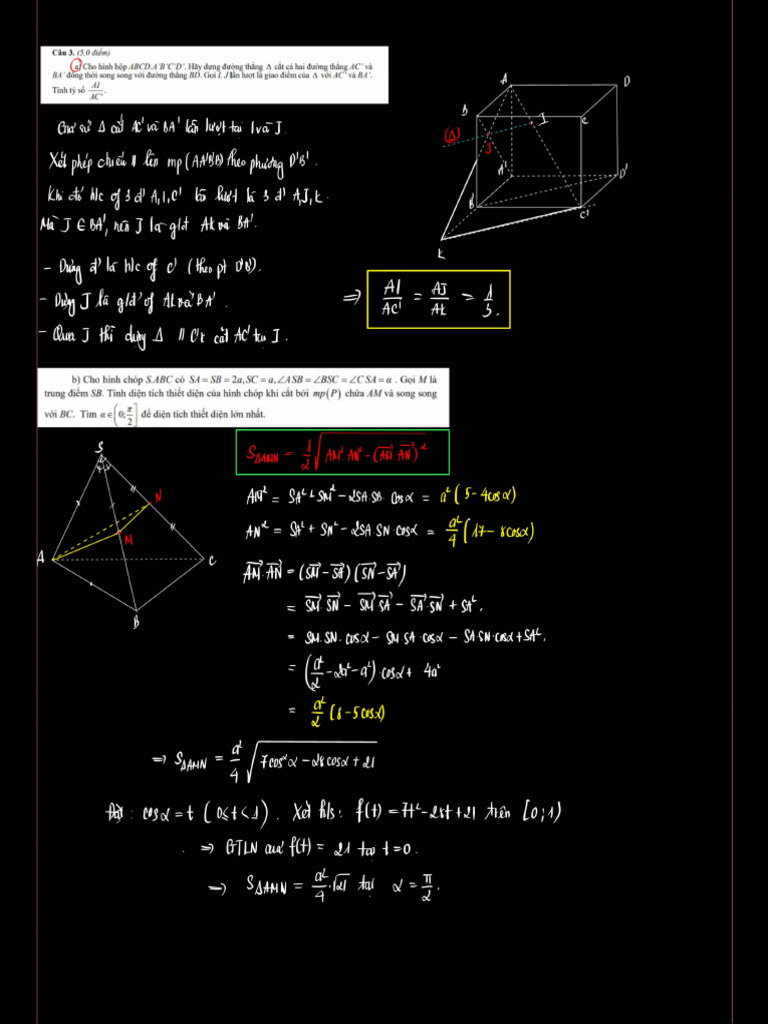 Câu 3. (5,0 điểm)
a) Cho hình hộp ABCD.A'B'C'D'. Hãy dựng đường thẳng Δ cắt cả hai đường thẳng AC' và
BA' đồng thời song song với đường thẳng BD. Gọi I, J lần lượt là giao điểm của Δ với AC' và BA'.
Tính tỷ số AI/AC'.
Giả sử Δ cắt AC' và BA' lần lượt tại I và J.
Xét phép chiếu // lên mp (AA'B'B) theo phương D'B'.
Khi đó h/c of 3 đ' A, I, C' lần lượt là 3 đ' A, J, K.
Mà J ∈ BA', nên J là gđ AK và BA'
- Dựng đ' là h/c of C' (theo pt D'B').
- Dựng J là gđ of AK và BA'.
- Qua J thì dựng Δ // C'K cắt AC' tại I.
A
D
B
C
(Δ)
J
I
A'
D'
B'
C'
K
⇒ AI/AC' = AJ/AK = 1/3.
b) Cho hình chóp S.ABC có SA = SB = 2a, SC = a, ∠ASB = ∠BSC = ∠CSA = α. Gọi M là
trung điểm SB. Tính diện tích thiết diện của hình chóp khi cắt bởi mp(P) chứa AM và song song
với BC. Tìm α ∈ (0; π/2] để diện tích thiết diện lớn nhất.
S
N
M
A
C
B
S△AMN = 1/2 √(AM². AN² - (AM⃗ AN⃗)²)
AM² = SA² + SM² - 2SA.SB. cosα = a²(5 - 4cosα)
AN² = SA² + SN² - 2SA.SN.cosα = a²/4 (17 - 8cosα)
AM⃗.AN⃗ = (SM⃗ - SA⃗)(SN⃗ - SA⃗)
= SM⃗ SN⃗ - SM⃗ SA⃗ - SA⃗.SN⃗ + SA².
= SM.SN. cosα - SM.SA.cosα - SA.SN.cosα + SA².
= (a²/2 - 2a² - a²).cosα + 4a²
= a²/2 (8 - 5cosα)
⇒ S△AMN = a²/4 √(7cos²α - 28cosα + 21)
Đặt: cosα = t (0 ≤ t < 1). Xét h/s: f(t) = 7t² - 28t + 21 trên [0;1)
⇒ GTLN của f(t) = 21 tại t = 0.
⇒ S△AMN = a²/4.√21 tại α = π/2.